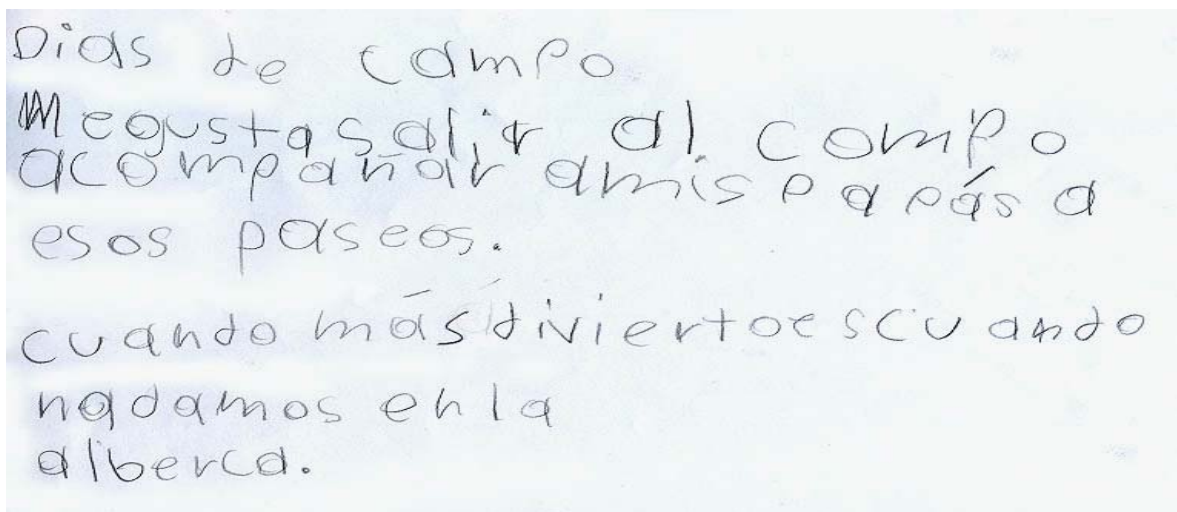 Dias de campo
Megusta salir al compo
acompañar amis papás a
esos paseos.
cuando más diviertoes cuando
nadamos en la
alberca.